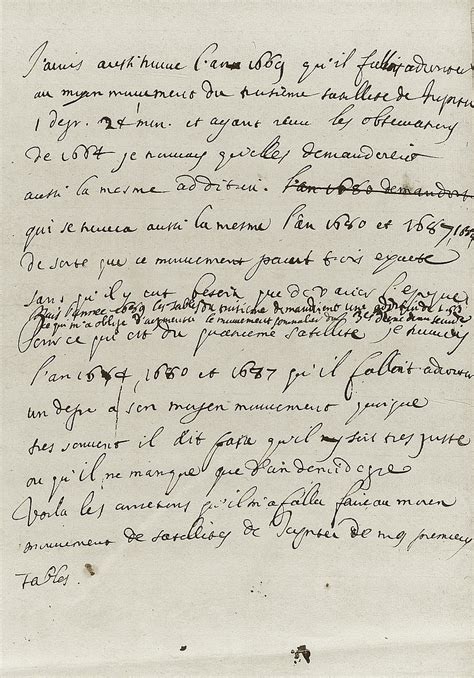 J'avois aussi trouvé l'an 1669 qu'il falloit adjouter
au moyen mouvement du troisieme satellite de Jupiter
1 degr. 24 min. et ayant reveu les observations
de 1664 je trouvay qu'elles demanderoit
aussi la mesme addition. l'an 1680 demandoit
qui se trouva aussi la mesme l'an 1680 et 1687,
de sorte que ce mouvement parut trois exacte
sans qu'il y eut besoin que de varier l'epoque
Mais l'année 1689 les tables du troisieme demandoient une
ce qui m'a obligé d'augmenter le mouvement
Pour ce qui est du quatrieme satellite je trouvay
l'an 1664, 1680 et 1687 qu'il falloit adjouter
un degré a son moyen mouvement quoique
tres souvent il dit qu'il soit tres juste
ou qu'il ne manque que d'un demi degre
Voila les corrections qu'il m'a fallu faire au moyen
mouvement de satellites de Jupiter de mes premieres
tables.